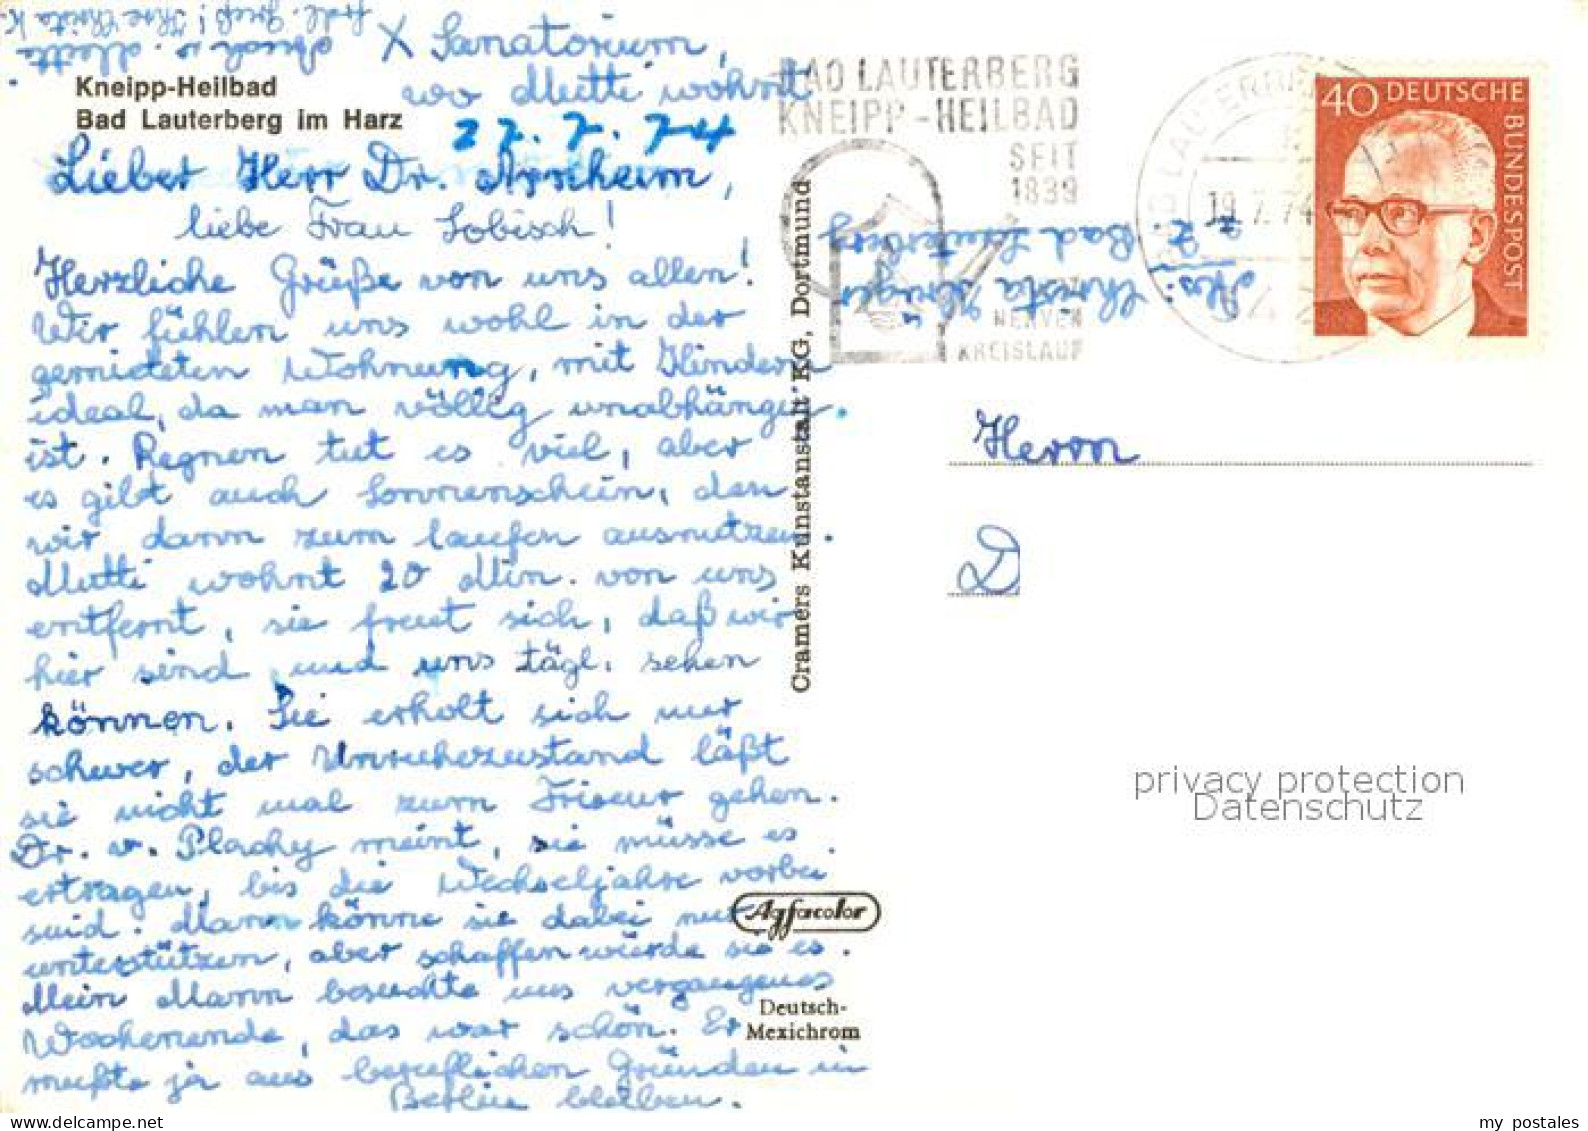 X Sanatorium,
wo Mutti wohnt
Kneipp-Heilbad
Bad Lauterberg im Harz
22. 7. 74
Lieber Herr Dr. Arnheim,
liebe Frau Lobisch!
Herzliche Grüße von uns allen!
Wir fühlen uns wohl in der
gemieteten Wohnung, mit Kindern
ideal, da man völlig unabhängig
ist. Regnen tut es viel, aber
es gibt auch Sonnenschein, den
wir dann zum laufen ausnutzen.
Mutti wohnt 20 Min. von uns
entfernt, sie freut sich, daß wir
hier sind und uns tägl. sehen
können. Sie erholt sich nur
schwer, der Unruhezustand läßt
sie nicht mal zum Friseur gehen.
Dr. v. Plachy meint, sie müsse es
ertragen, bis die Wechseljahre vorbei
sind. Mann könne sie dabei nur
unterstützen, aber schaffen würde sie es.
Mein Mann besuchte uns vergangenes
Wochenende, das war schön. Er
mußte ja aus beruflichen Gründen in
Berlin bleiben.
auch v. Mutti
frdl. Gruß! Ihre Christa K.
Cramers Kunstanstalt KG, Dortmund
Agfacolor
Deutsch-
Mexichrom
BAD LAUTERBERG
KNEIPP-HEILBAD
SEIT
1839
HERZ
NERVEN
KREISLAUF
BAD LAUTERBERG
19.7.74
Abs: Christa Krüger
z. Z. Bad Lauterberg
40 DEUTSCHE
BUNDESPOST
Herrn
D
privacy protection
Datenschutz
www.delcampe.net
my postales